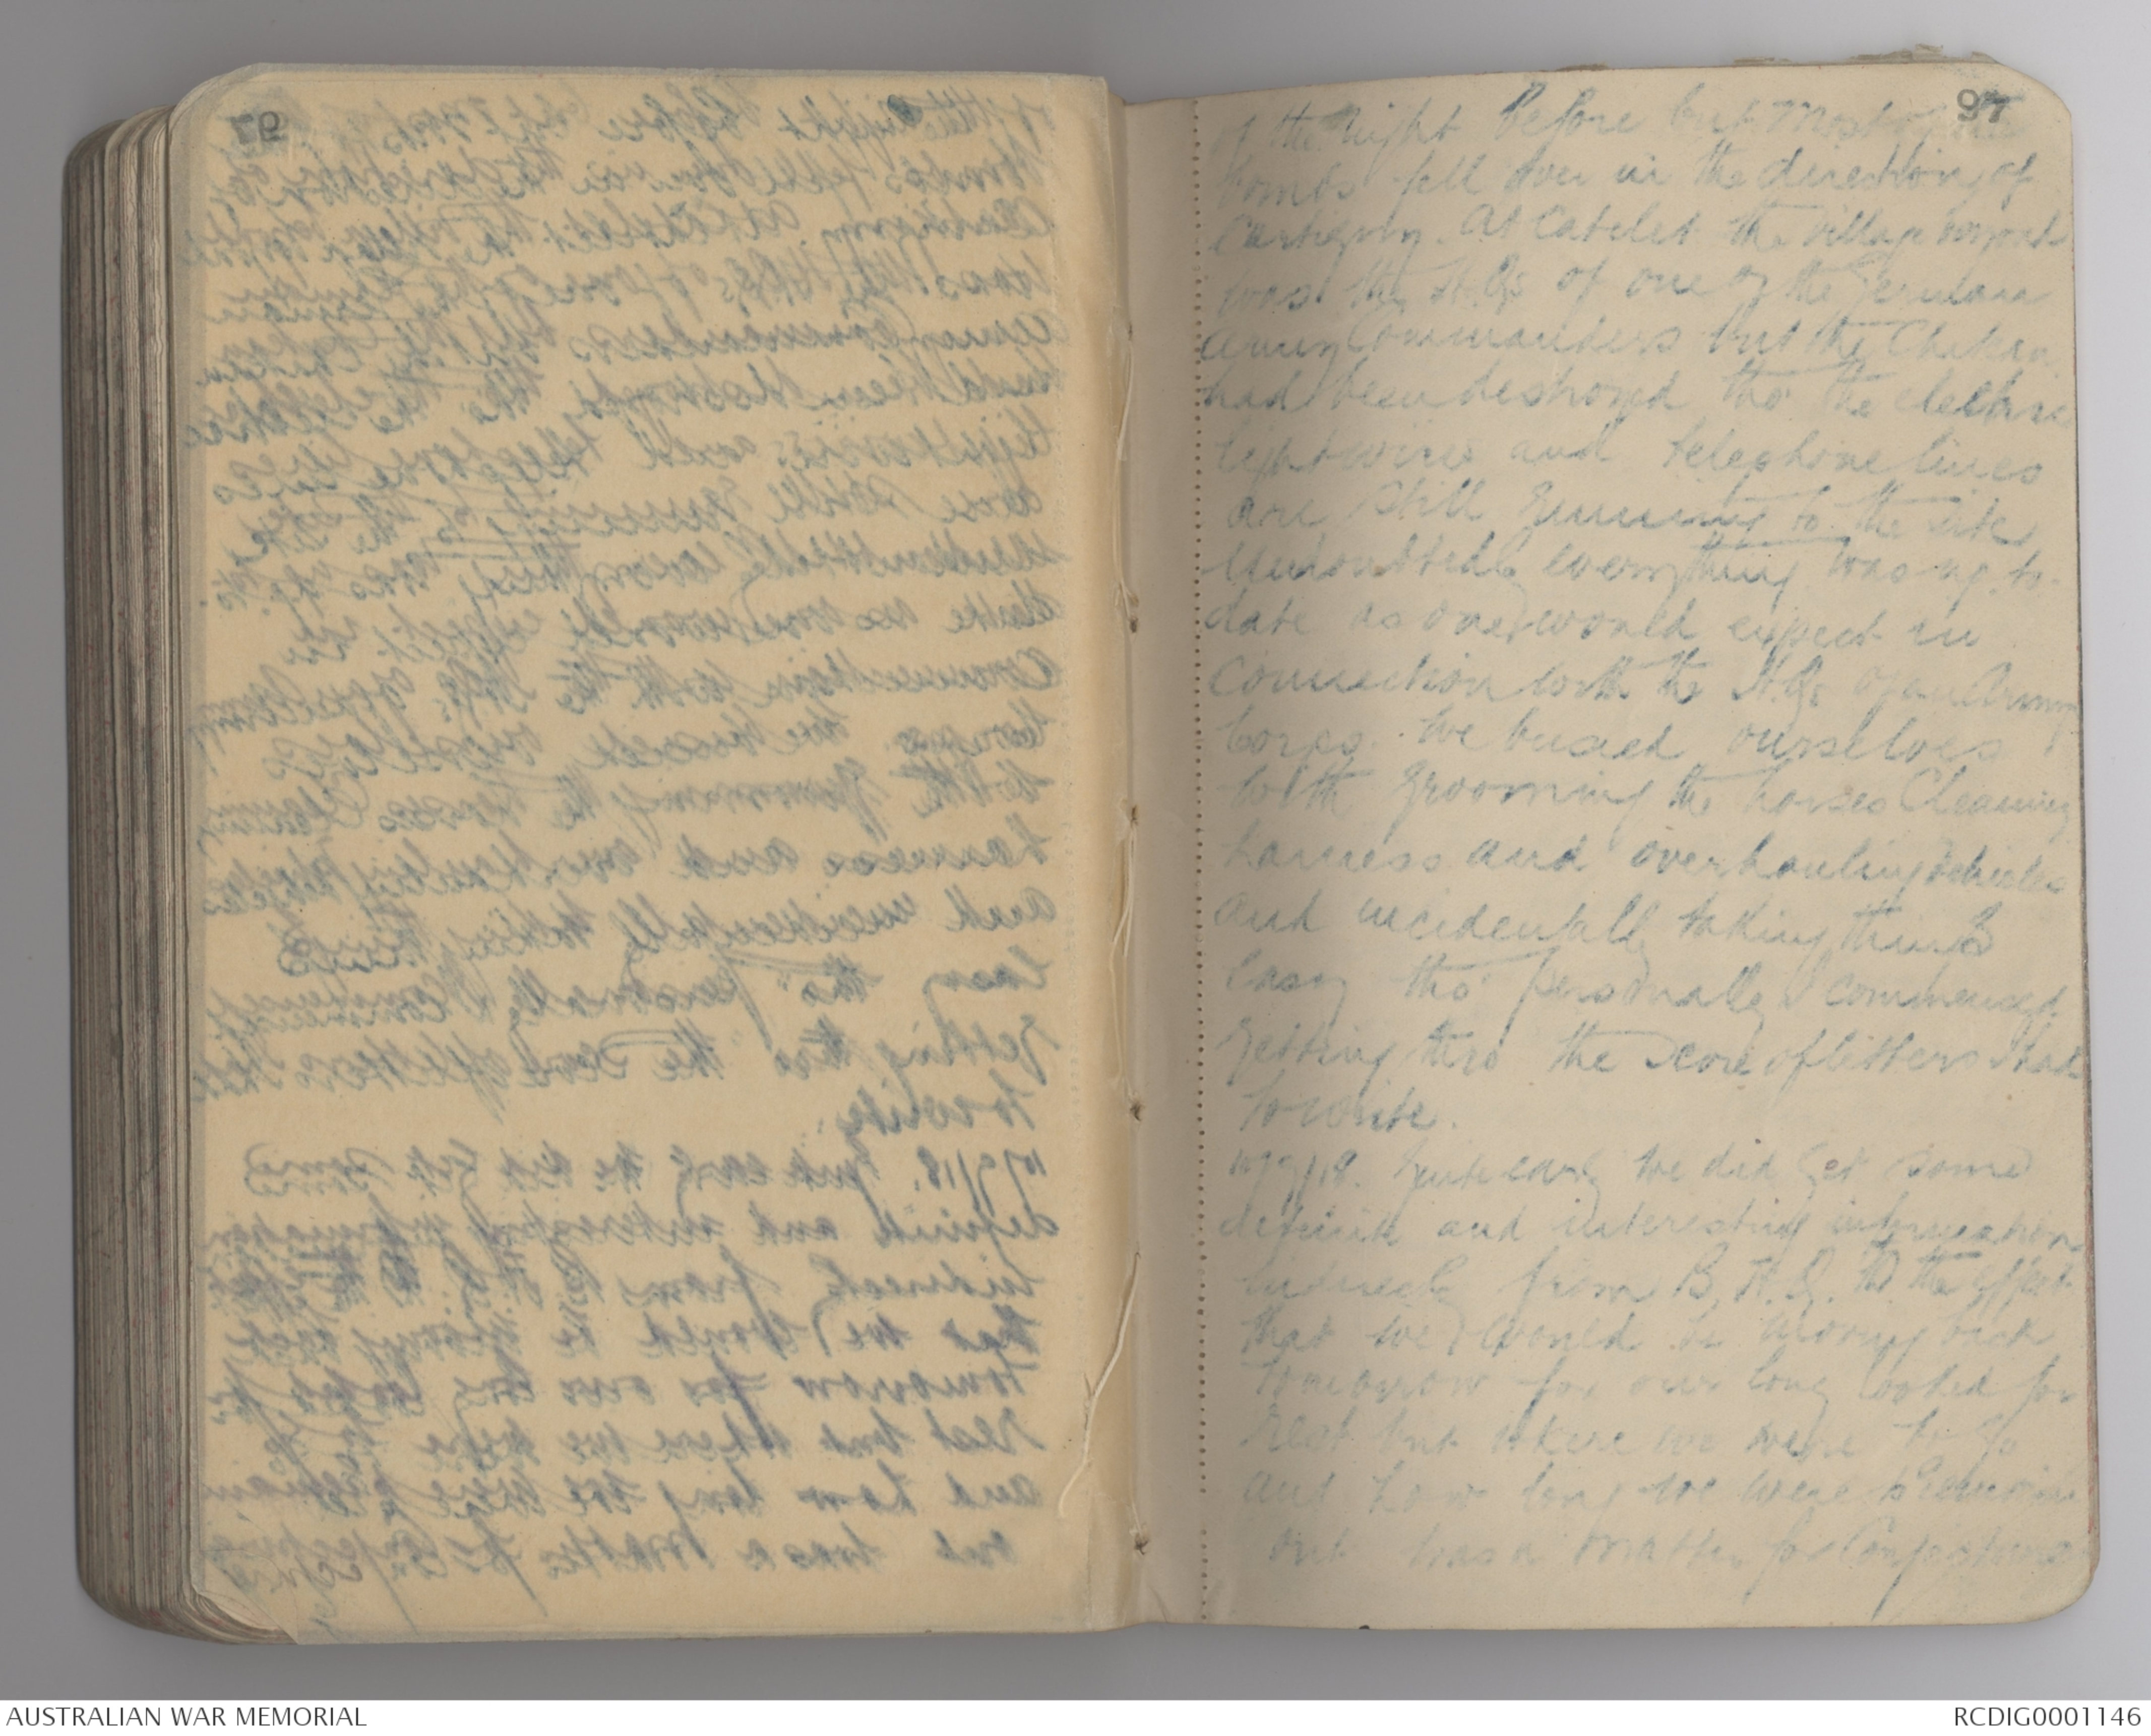 97
of the night before but most of the
bombs fell over in the direction of
Cartigny. At Catelet the village
was the H.Qs of one of the German
Army Commanders but the Chateau
had been destroyed tho' the electric
light wires and telephone lines
are still running to the site
Undoubtedly everything was up to
date as one would expect in
connection with the H.Qs of an Army
Corps. We busied ourselves
with grooming the horses Cleaning
harness and overhauling vehicles
and incidentally taking things
easy tho' personally I commenced
getting thro the score of letters I had
to write.
10/9/18. Quite early we did get some
definite and interesting information
indirectly from B.H.Q. to the effect
that we would be moving back
tomorrow for our long looked for
rest but where we were to go
and how long we were to remain
out was a matter for Conjecture
AUSTRALIAN WAR MEMORIAL
RCDIG0001146